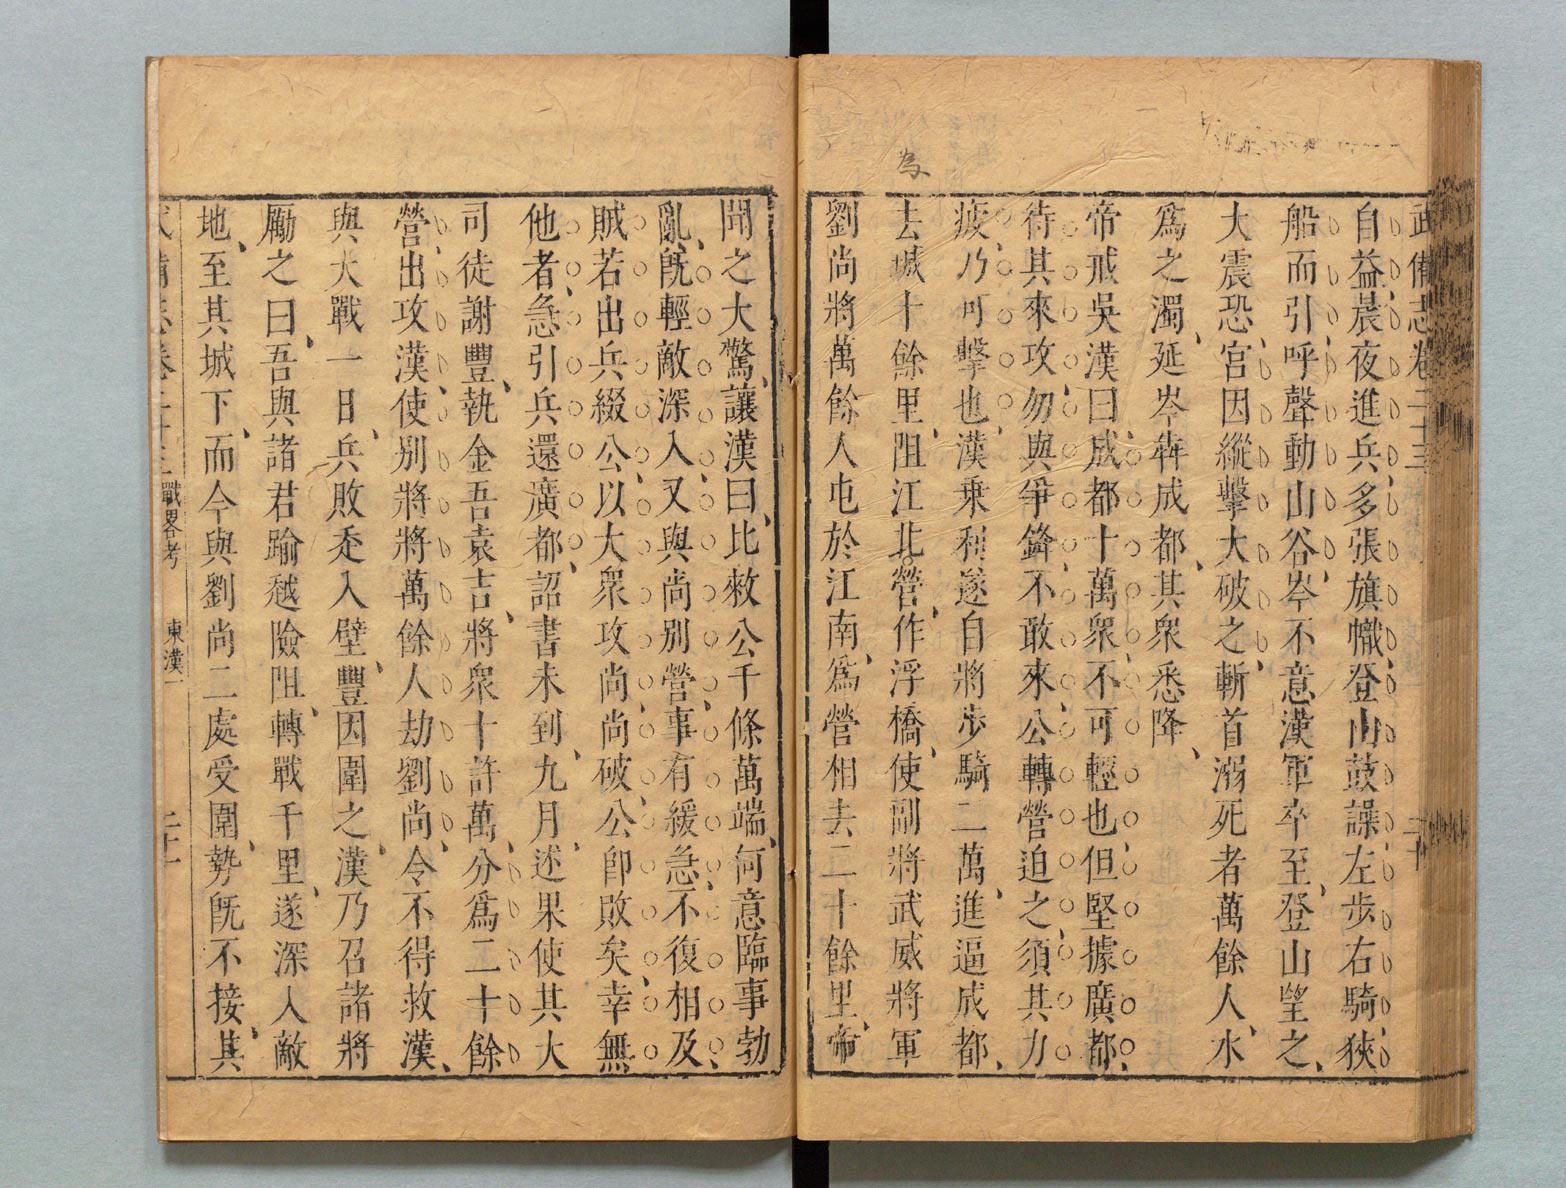 武備志卷二十三
二十
自益晨夜進兵多張旗幟登山鼓譟左步右騎狹
船而引呼聲動山谷岑不意漢軍卒至登山望之
大震恐宮因縱擊大破之斬首溺死者萬餘人水
爲之濁延岑犇成都其衆悉降
帝戒吳漢曰成都十萬衆不可輕也但堅據廣都
待其來攻勿與爭鋒不敢來公轉營迫之須其力
疲乃可擊也漢乘利遂自將步騎二萬進逼成都
去城十餘里阻江北營作浮橋使副將武威將軍
劉尚將萬餘人屯於江南爲營相去二十餘里帝
為
聞之大驚讓漢曰比敕公千條萬端何意臨事勃
亂旣輕敵深入又與尚別營事有緩急不復相及
賊若出兵綴公以大衆攻尚尚破公卽敗矣幸無
他者急引兵還廣都詔書未到九月述果使其大
司徒謝豐執金吾袁吉將衆十許萬分爲二十餘
營出攻漢使別將將萬餘人劫劉尚令不得救漢
與大戰一日兵敗走入壁豐因圍之漢乃召諸將
厲之曰吾與諸君踰越險阻轉戰千里遂深入敵
地至其城下而今與劉尚二處受圍勢旣不接其
戰畧考
東漢一
二十一